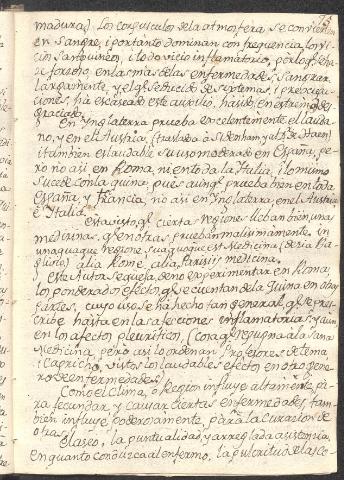 maduras). Los corpusculos de la atmosfera se convierten
en Sangre, i por tanto dominan con frequencia los vi-
cios sanguineos, i todo vicio inflamatorio, por lo q.e ha
de forzoso, en las mas de las enfermedades, sangrar
largamente, y el q.e seducido de systemas, i preocupa-
ciones, ha escaseado este auxilio, ha sido en extremo des-
graciado.
En Ynglaterra prueba excelentemente el lauda-
no, y en el Austria, (traslado à Sidenham y al Haen)
i tambien es laudable su uso moderado en España, pe-
ro no asi en Roma, ni en toda la Italia, i lo mismo
sucede con la quina, pues aunq.e prueba bien en toda
España, y Francia, no asi en Ynglaterra, en el Austria
è Italia.
Esta visto q.e ciertas regiones lleban bien una
medicina, q.e en otras prueban malisimamente, in
unaquaque regione sua quoque est Medicina (decia Ba-
glivio) alia Romæ alia Parisiis medicina.
Este Autor se queja de no experimentar en Roma,
los ponderados efectos q.e se cuentan de la Quina en otras
partes, cuyo uso se ha hecho tan general q.e se pres-
cribe hasta en las afecciones inflamatorias, y aun
en los afectos pleuriticos, (cosa q.e repugna à la sana
Medicina, pero asi lo ordenan Profesores de tema
i capricho, vistos los laudables efectos en otro gene-
ro de enfermedades)
Como el Clima, ò Region influye altamente pa-
ra fecundar, y causar ciertas enfermedades, tam-
bien influye poderosamente, para la curacion de
otras.
El aseo, la puntualidad, y arreglada asistencia,
en quanto conduzca al enfermo, la pulcritud de las co-